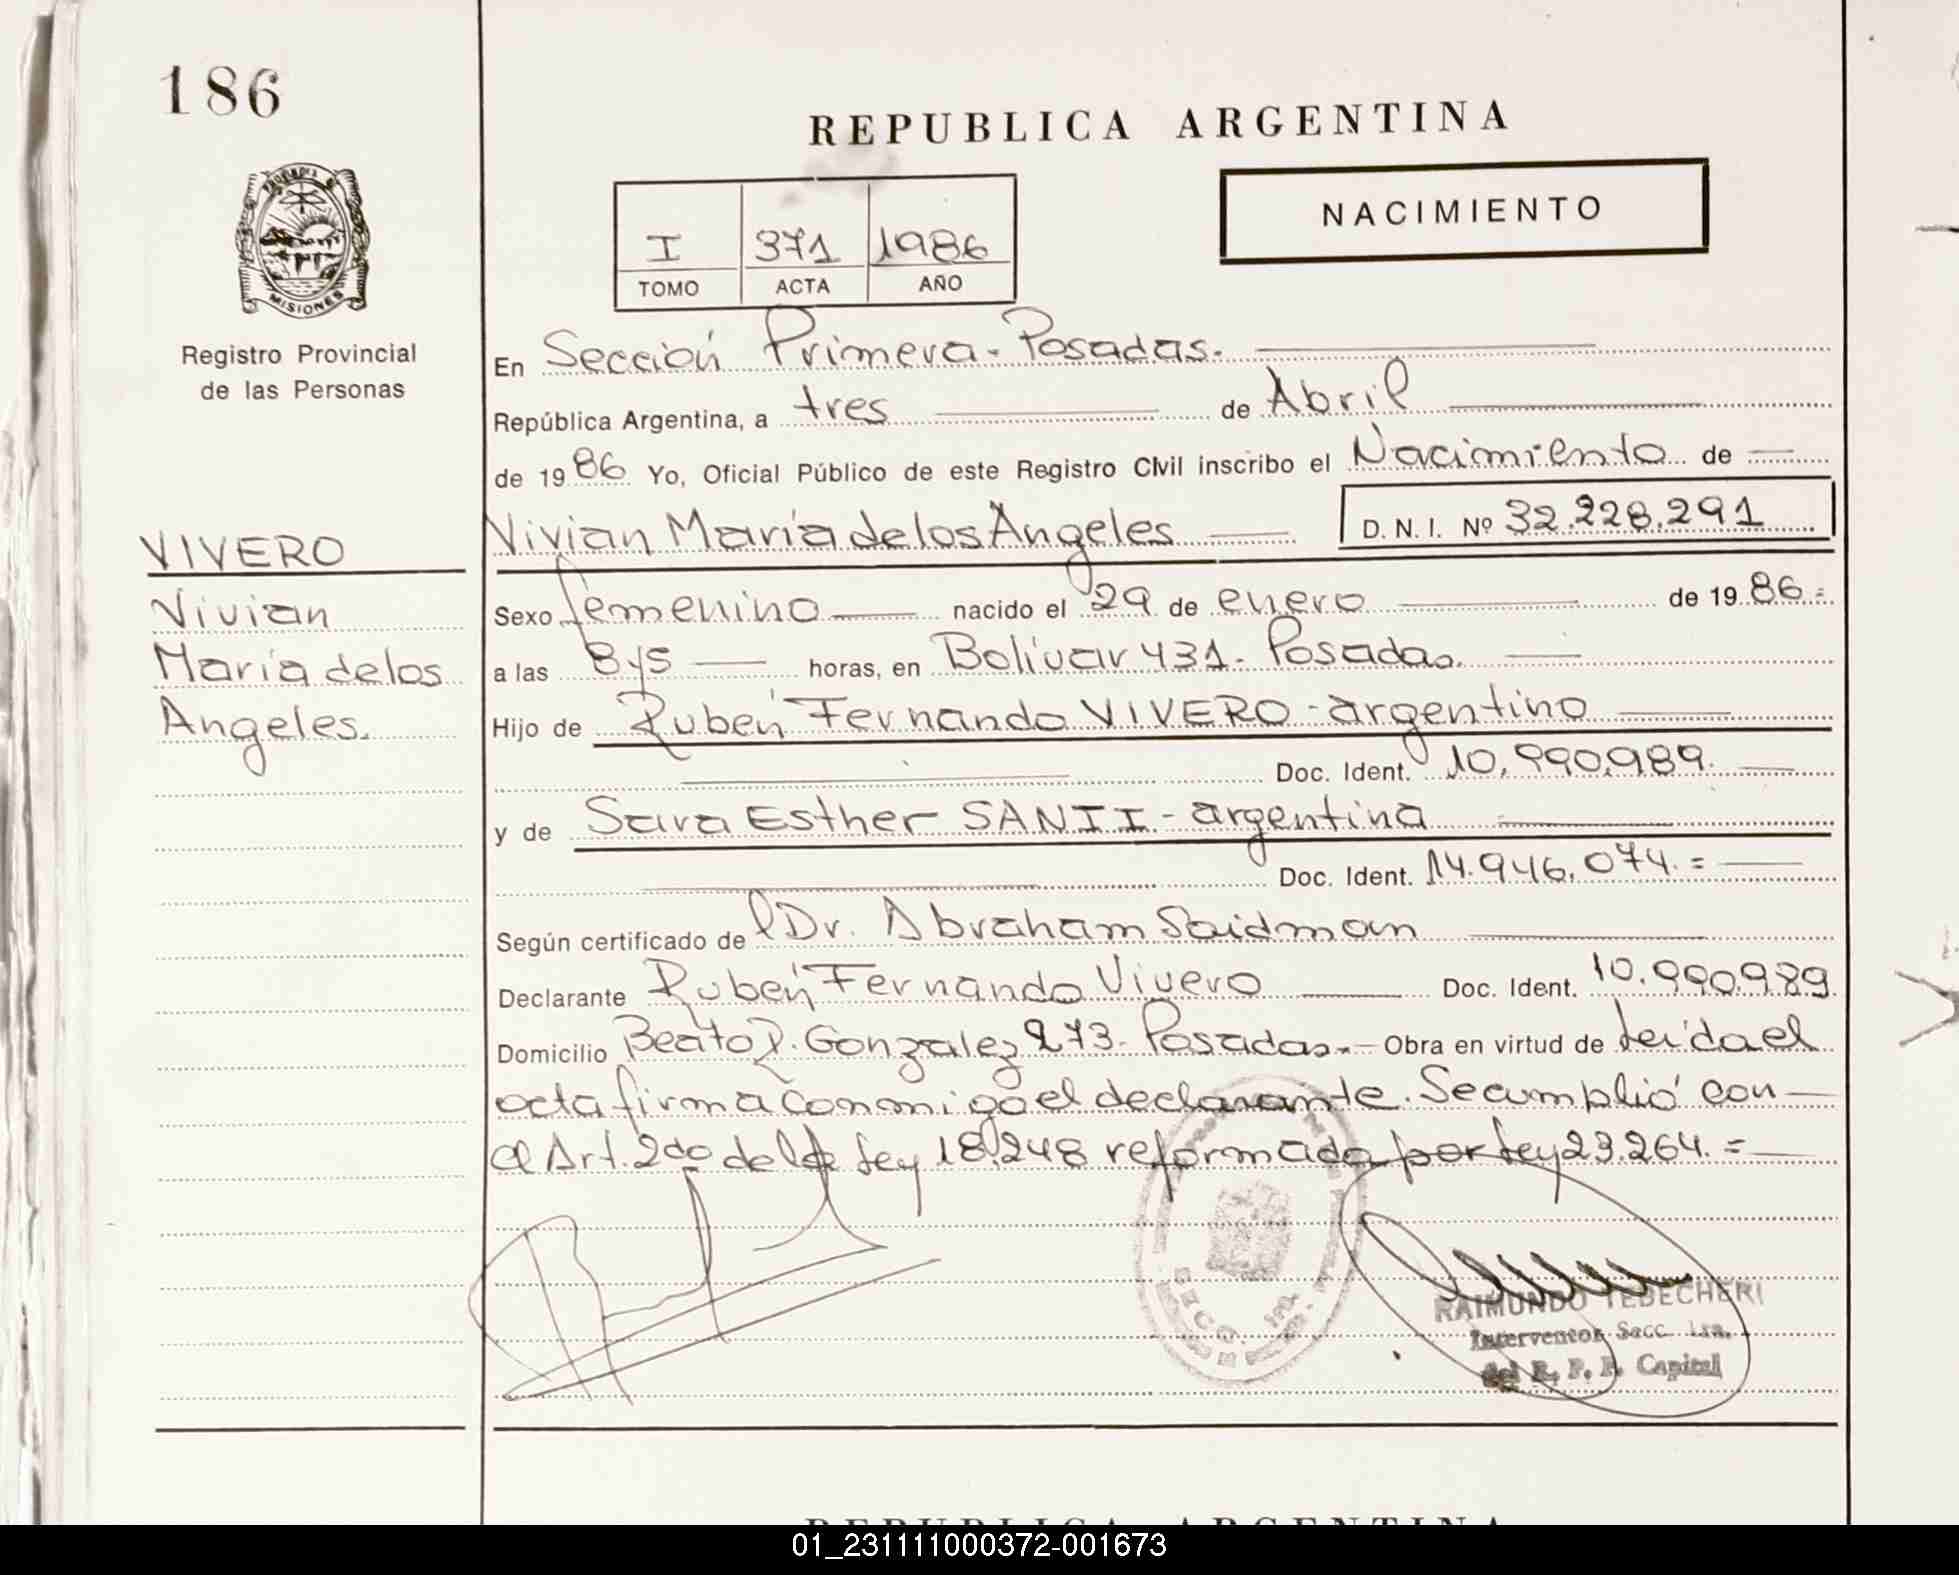 186
REPUBLICA ARGENTINA
NACIMIENTO
I 371 1986
TOMO ACTA AÑO
MISIONES
Registro Provincial
de las Personas
En Sección Primera - Posadas.
República Argentina, a tres de Abril
de 1986 Yo, Oficial Público de este Registro Civil inscribo el Nacimiento de
VIVERO
Vivian María de los Angeles D. N. I. Nº 32.228.291
Vivian
María de los
Angeles.
Sexo femenino nacido el 29 de enero de 1986.=
a las 8 y 5 horas, en Bolívar 431 - Posadas.
Hijo de Rubén Fernando VIVERO - argentino
Doc. Ident. 10.990.989.
y de Sara Esther SANTI - argentina
Doc. Ident. 14.946.074.=
Según certificado de Dr. Abraham Saidman
Declarante Rubén Fernando Vivero Doc. Ident. 10.990.989
Domicilio Beato R. Gonzalez 273 - Posadas.- Obra en virtud de Leída el
acta firma conmigo el declarante. Se cumplió con
el Art. 2do de la Ley 18.248 reformada por Ley 23.264.=
RAIMUNDO TEBECHERI
Interventor Secc. 1ra.
del R. P. P. Capital
REPUBLICA ARGENTINA
01_231111000372-001673